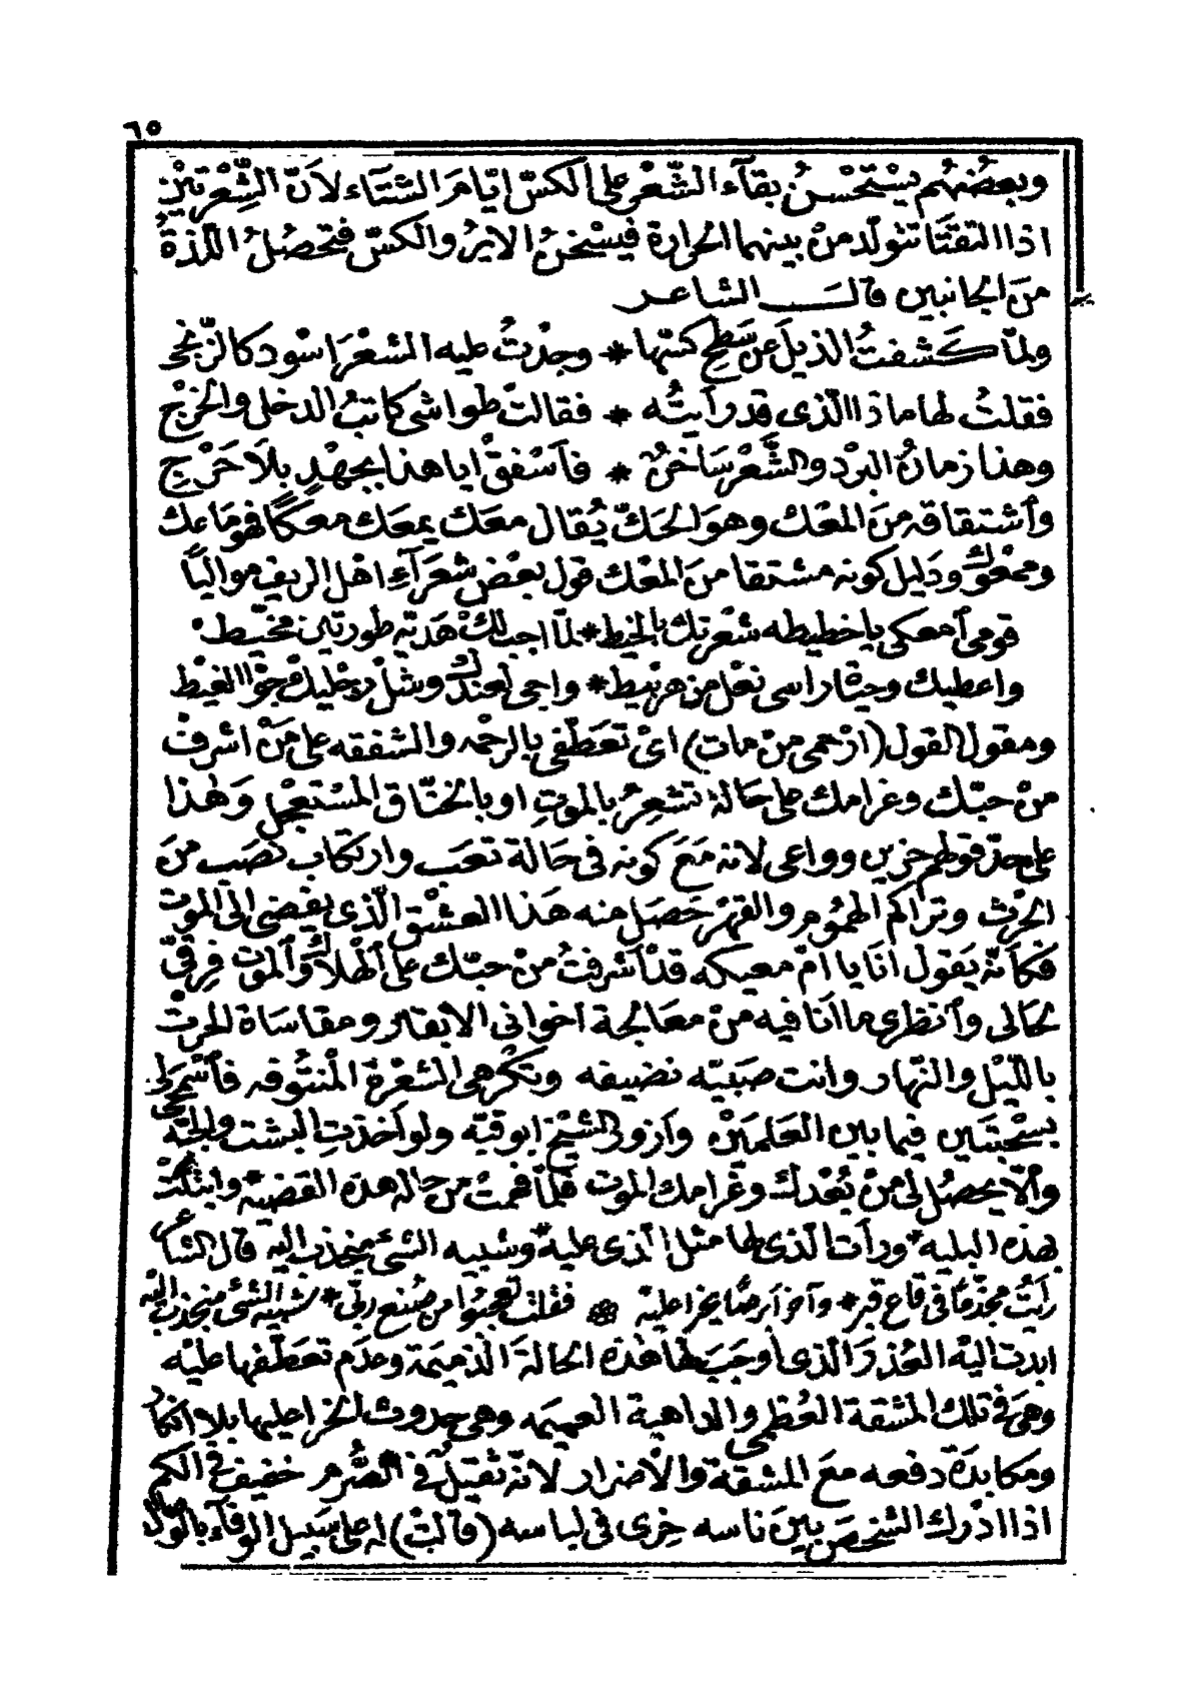 ٦٥
وبعضهم يستحسن بقآء الشّعر على الكسّ ايّام الشتآء لانّ الشّعرتين
اذا التقتا تتولّد من بينهما الحرارة فيسخن الاير والكسّ فتحصل اللّذة
من الجانبين قالــــ الشاعــر
ولمّا كشفت الذيل عن سطح كسّها * وجدت عليه الشعر اسود كالزّنجى
فقلت لها ماذا الّذى قد رأيته * فقالت طواشى كاتب الدخل والخرج
وهذا زمان البرد والشّعر ساخن * فاسفق ايا هذا بجهد بلا حرج
واشتقاقه من المعك وهو الحكّ يقال معك يمعك معكًا فهو ماعك
وممعوك ودليل كونه مشتقا من المعك قول بعض شعرآء اهل الريف مواليًا
قومى امعكى يا خطيطه شعرتك بالخيط * لمّا اجب لك هديّه طورتين مخيّط
واعطيك وحيٰاة راسى نعل من مريط * واجى لعندك وشل رجليك جوّا الغيط
ومقول القول (ارحمى من مات) اى تعطّفى بالرحمه والشفقه على من اشرف
من حبّك وغرامك على حالة تشعر بالموت او بالخنّاق المستعجل وهذا
على حدّ قولهم حزين وواعى لانه مع كونه فى حالة تعب وارتكاب نصب من
الحرث وتراكم الهموم والقهر حصل منه هذا العشق الّذى يفضى الى الموت
فكأنّه يقول انا يا امّ معيكه قد اشرفت من حبّك على الهلاك والموت فرقّى
لحالى وانظرى ما انا فيه من معالجة اخوانى الابقار ومقاساة الحرث
بالليل والنّهار وانت صبيّه نضيفه وتكرهى الشعرة المنتوفه فاسمحى لى
بسحبتين فيما بين العلمين وازور الشيخ ابو قبّه ولو اخذت البشت والجبّه
والّا يحصل لى من بعدك وغرامك الموت فلمّا فهمت من حاله هذه القضيّه وابتلت
بهذه البليه * ورأت الّذى لها مثل الّذى عليه * وشبيه الشئ منجذب اليه قال الشاعر
رأيت مجذّمًا فى قاع قبر * وآخر ابرصًا يخرا عليه ۞ فقلت تعجّبوا من صنع ربّى * شبيه الشئ منجذب اليه
ابدت اليه العذر الّذى اوجب لها هذه الحالة الذميمة وعدم تعطّفها عليه
وهى فى تلك المشقة العظمى والداهية العميمه وهى حدوث الخرا عليها بلا انكار
ومكابدة دفعه مع المشقة والاضرار لانّه ثقيل فى الصّرم خفيف فى الكم
اذا ادرك الشخص بين ناسه خرى فى لباسه (قالت) له على سبيل الوفآء بالوصال